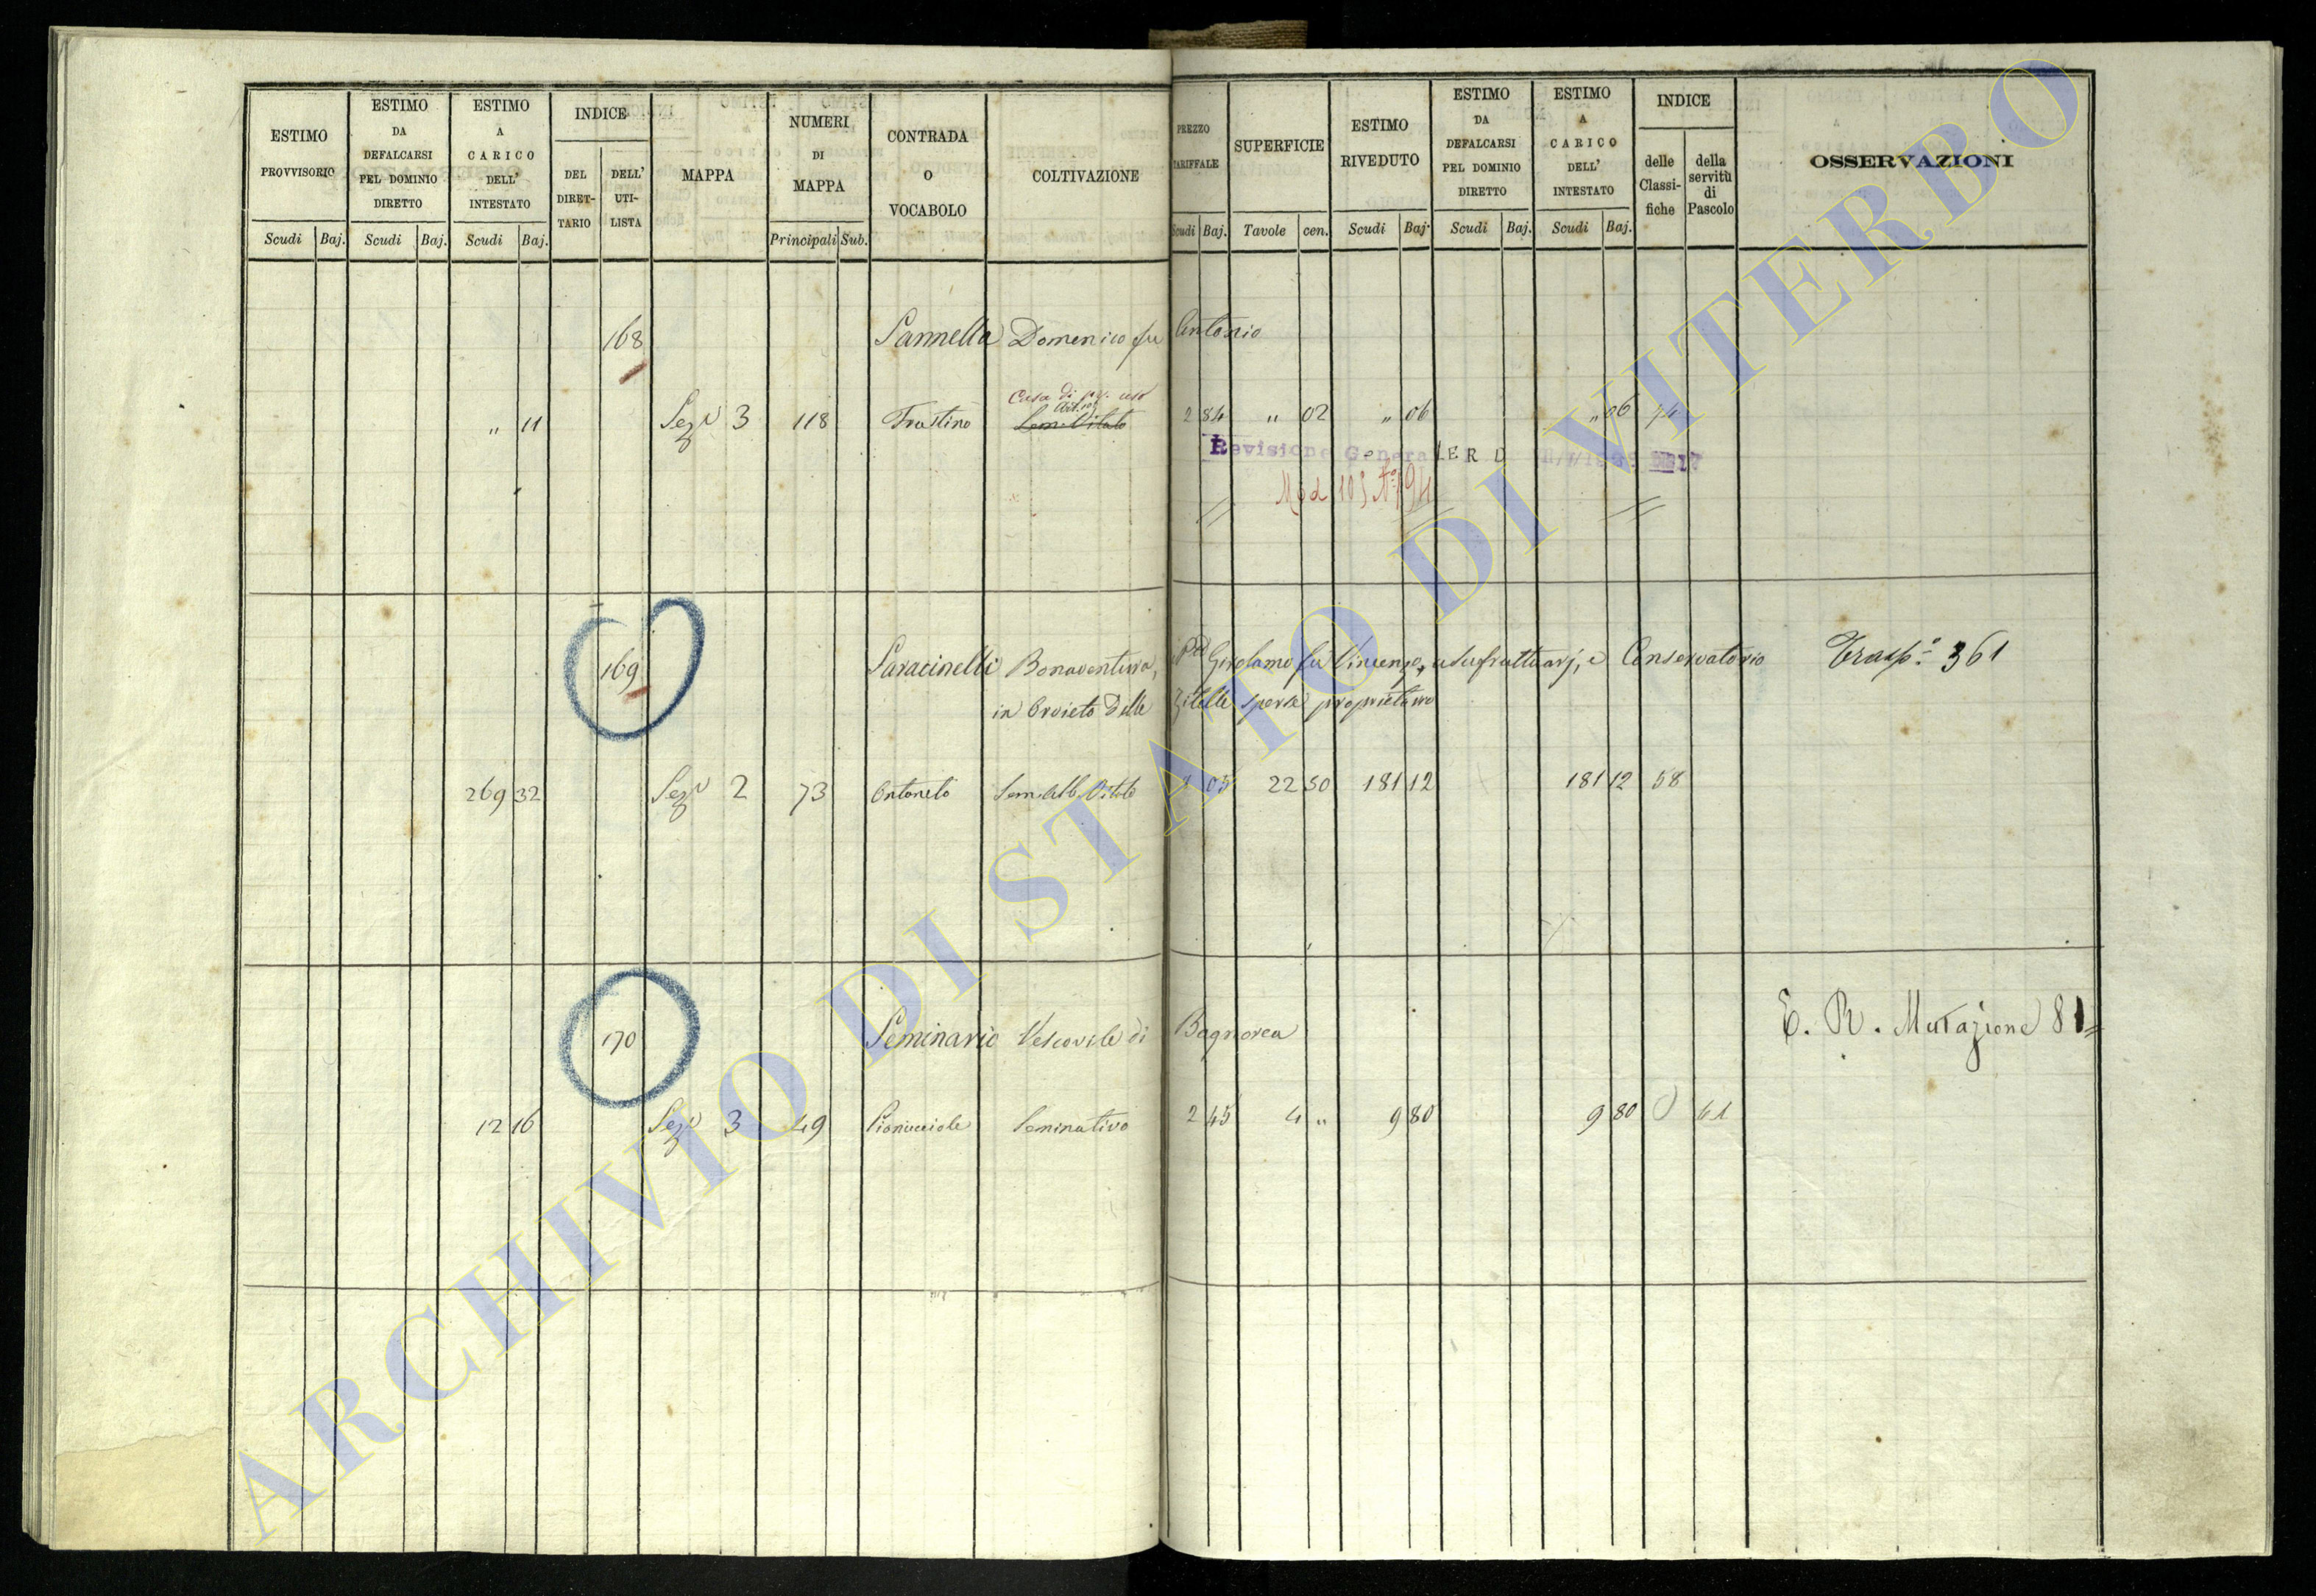 ESTIMO PROVVISORIO
Scudi Baj.
ESTIMO DA DEFALCARSI PEL DOMINIO DIRETTO
Scudi Baj.
ESTIMO A CARICO DELL' INTESTATO
Scudi Baj.
INDICE
DEL DIRET-TARIO
DELL' UTI-LISTA
MAPPA
NUMERI DI MAPPA
Principali Sub.
CONTRADA O VOCABOLO
COLTIVAZIONE
PREZZO TARIFFALE
Scudi Baj.
SUPERFICIE
Tavole cen.
ESTIMO RIVEDUTO
Scudi Baj.
ESTIMO DA DEFALCARSI PEL DOMINIO DIRETTO
Scudi Baj.
ESTIMO A CARICO DELL' INTESTATO
Scudi Baj.
INDICE
delle Classi-fiche
della servitù di Pascolo
OSSERVAZIONI
168 Sannella Domenico fu Antonio
Casa di
" 11 Sez.e 3 118 Sem. Vitato 2 84 " 02 " 06 " 06
Revisione Genera
Mod 103
169 Saracinelli Bonaventura, Girolamo fu Vincenzo, usufruttuarj, e Conservatorio
in Orvieto delle Zitelle sperse proprietario
269 32 Sez.e 2 73 Sem. Alb. Vitato 05 22 50 181 12 181 12 58
361
170 Seminario Vescovile di Bagnorea E. R. Mutazione 81
12 16 Sez.e 3 49 Seminativo 2 45 4 " 9 80 9 80 61
ARCHIVIO DI STATO DI VITERBO